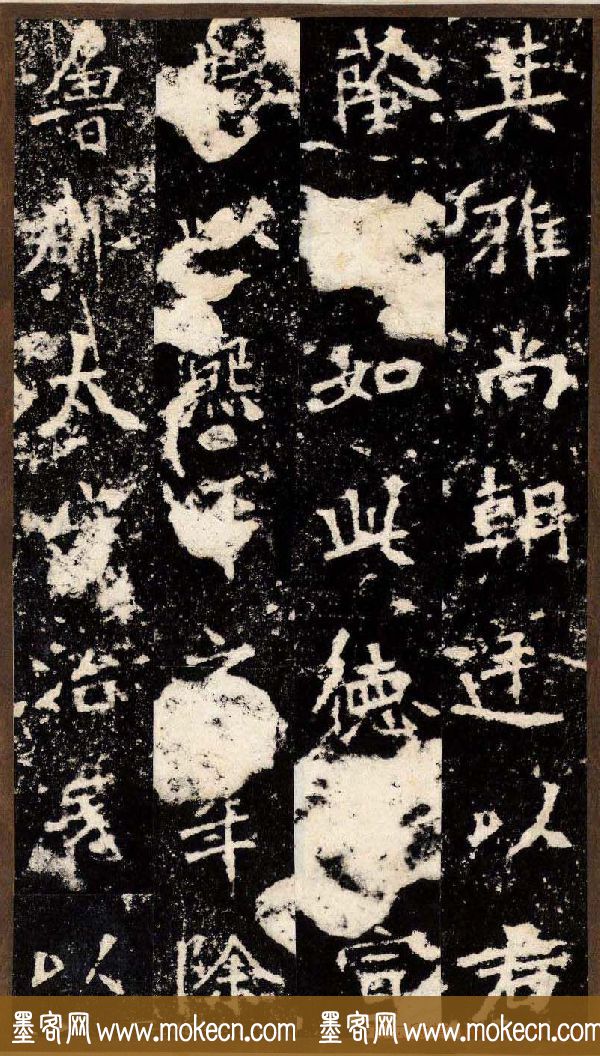 其雅尚朝廷以君
蔭如此德宣
以熙平之年除
魯郡太守治民以
墨客网 www.mokecn.com 墨客网 www.mokecn.com